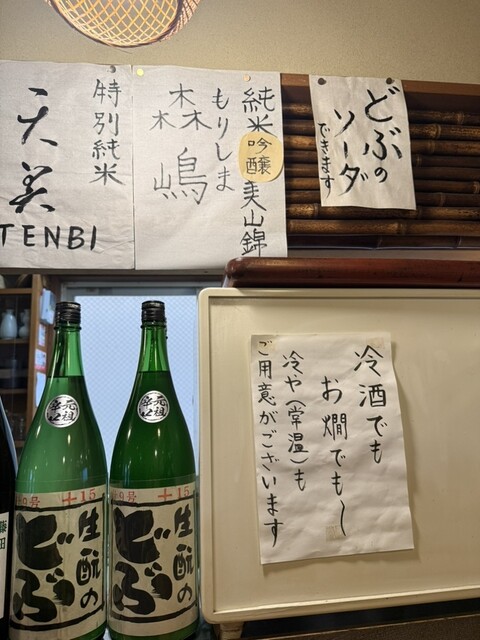 特別純米
天美
TENBI
純米吟醸 美山錦
もりしま
森嶋
どぶの
ソーダ
できます
冷酒でも
お燗でも〜
冷や(常温)も
ご用意がございます
元祖
+15
生酛の
どぶ
元祖
+15
生酛の
どぶ